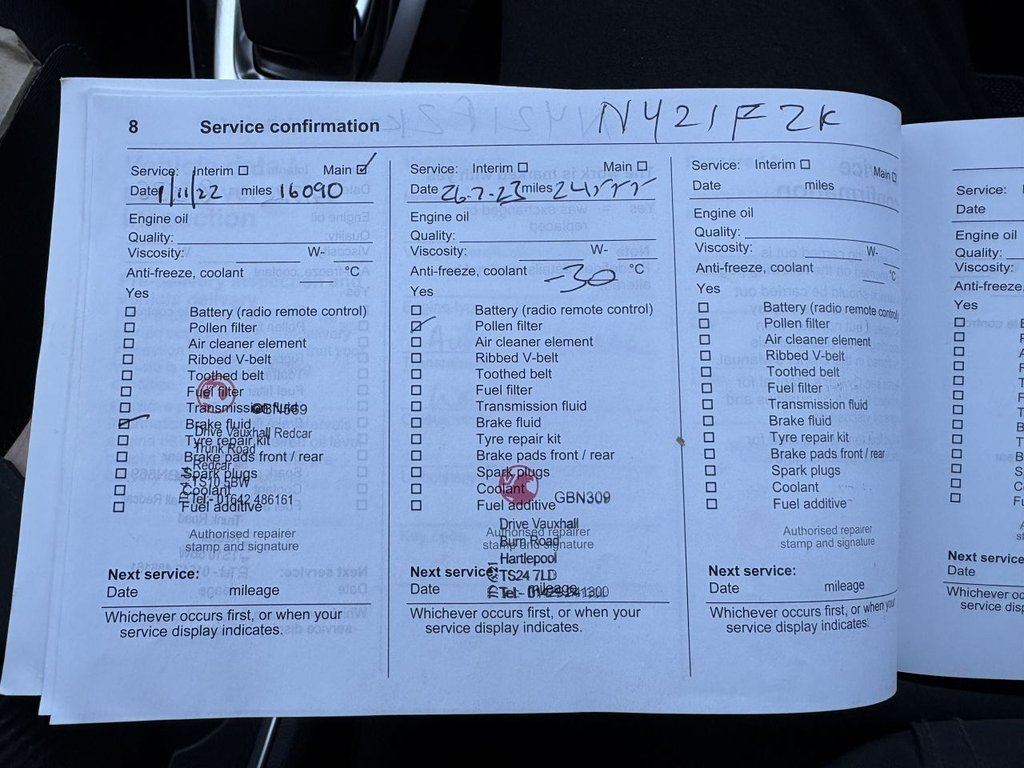 NY21FZK
8 Service confirmation
Service: Interim Main
Date 1/11/22 miles 16090
Engine oil
Quality:
Viscosity: W-
Anti-freeze, coolant °C
Yes
Battery (radio remote control)
Pollen filter
Air cleaner element
Ribbed V-belt
Toothed belt
Fuel filter
Transmission fluid
GBN569
Brake fluid
Drive Vauxhall Redcar
Tyre repair kit
Trunk Road
Brake pads front / rear
Redcar
Spark plugs
TS10 5BW
Coolant
Tel:- 01642 486161
Fuel additive
Authorised repairer
stamp and signature
Next service:
Date mileage
Whichever occurs first, or when your
service display indicates.
Service: Interim Main
Date 26.7.23 miles
Engine oil
Quality:
Viscosity: W-
Anti-freeze, coolant -30 °C
Yes
Battery (radio remote control)
Pollen filter
Air cleaner element
Ribbed V-belt
Toothed belt
Fuel filter
Transmission fluid
Brake fluid
Tyre repair kit
Brake pads front / rear
Spark plugs
Coolant
GBN309
Fuel additive
Drive Vauxhall
Authorised repairer
Burn Road
stamp and signature
Hartlepool
Next service:
TS24 7LD
Date mileage
Tel:-
Whichever occurs first, or when your
service display indicates.
Service: Interim Main
Date miles
Engine oil
Quality:
Viscosity: W-
Anti-freeze, coolant °C
Yes
Battery (radio remote control)
Pollen filter
Air cleaner element
Ribbed V-belt
Toothed belt
Fuel filter
Transmission fluid
Brake fluid
Tyre repair kit
Brake pads front / rear
Spark plugs
Coolant
Fuel additive
Authorised repairer
stamp and signature
Next service:
Date mileage
Whichever occurs first, or when your
service display indicates.
Service:
Date
Engine oil
Quality:
Viscosity:
Anti-freeze,
Yes
Next service
Date
Whichever oc
service disp